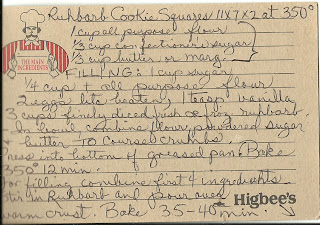 Rhubarb Cookie Squares 11x7x2 at 350°
1 cup all purpose flour
1/3 cup confectioner's sugar
1/3 cup butter or marg.
THE MAIN INGREDIENTS
FILLING: 1 cup sugar
1/4 cup all purpose flour
2 eggs beaten, 1 teasp vanilla
3 cups finely diced fresh or froz rhubarb.
In bowl combine flour, powdered sugar
butter to coarse crumbs.
Press into bottom of greased pan. Bake
350° 12 min.
For filling combine first 4 ingredients
Stir in Rhubarb and pour over
warm crust. Bake 35-40 min.
Higbee's